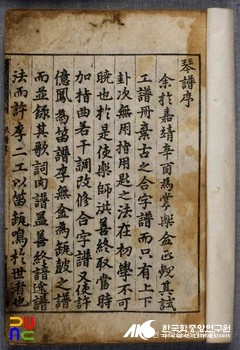 琴譜序
余於嘉靖辛酉爲掌樂僉正觀其試
工譜冊棄古之合字譜而只有上下
卦次無用指用匙之法在初學不可
曉也於是使樂師洪善終取當時
加指曲若干調改修合字譜又使許
億鳳爲笛譜李無金爲缻鼓之譜
而並錄其歌詞肉譜蓋善終諳鍊譜
法而許李二工以笛缻鳴於世者也
AKS 한국학중앙연구원